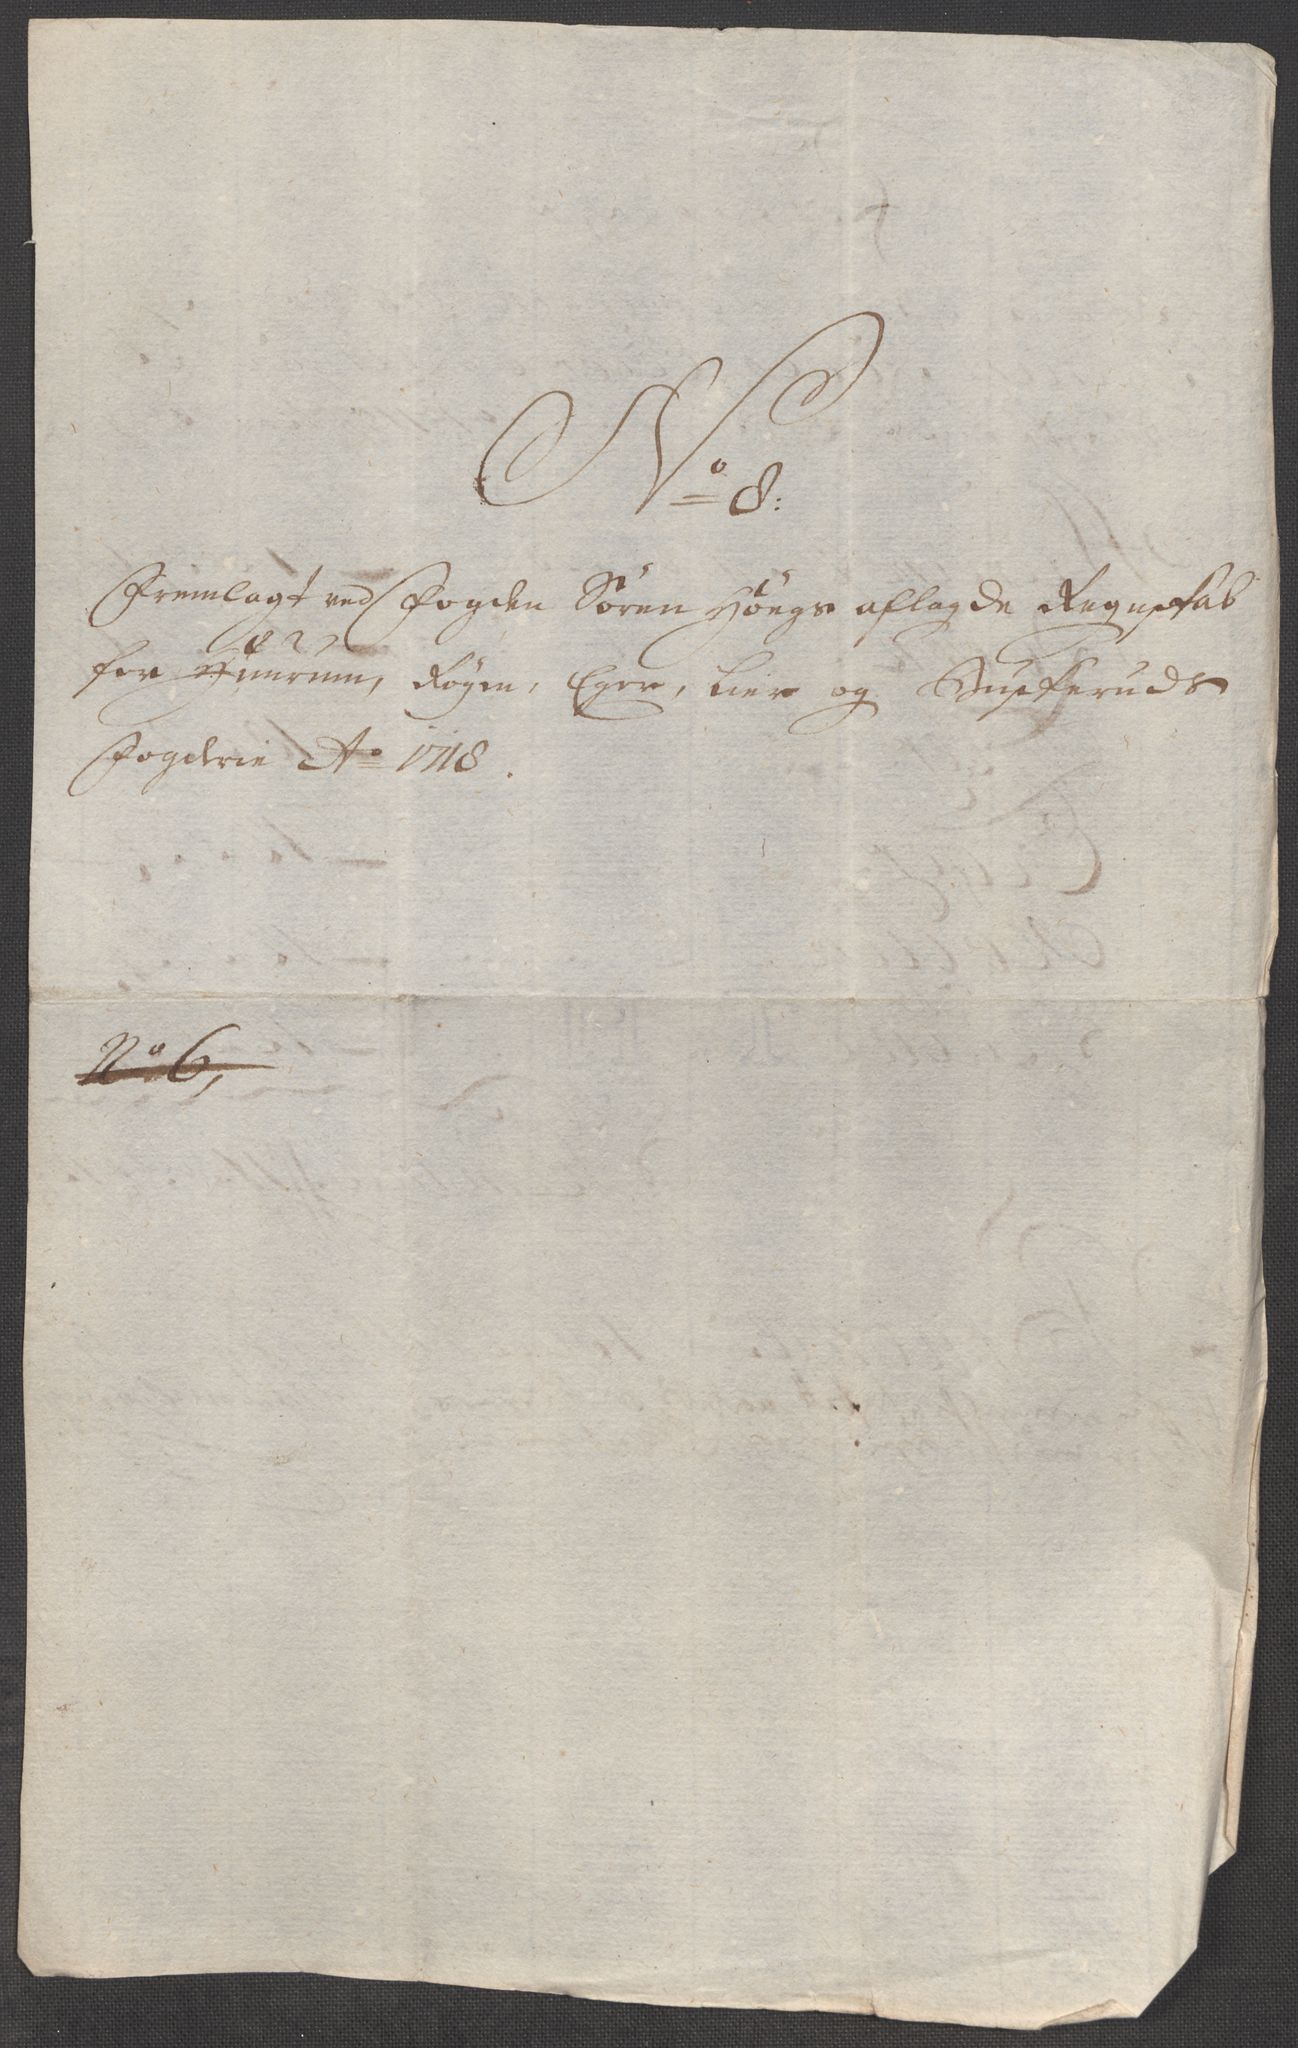 No 8:
Fremlagt ved Fogden Sören Höegs aflagde Regnskab
for Hurum, Røgen, Eger, Lier og Buskeruds
Fogderie Ao 1718.
No 6,